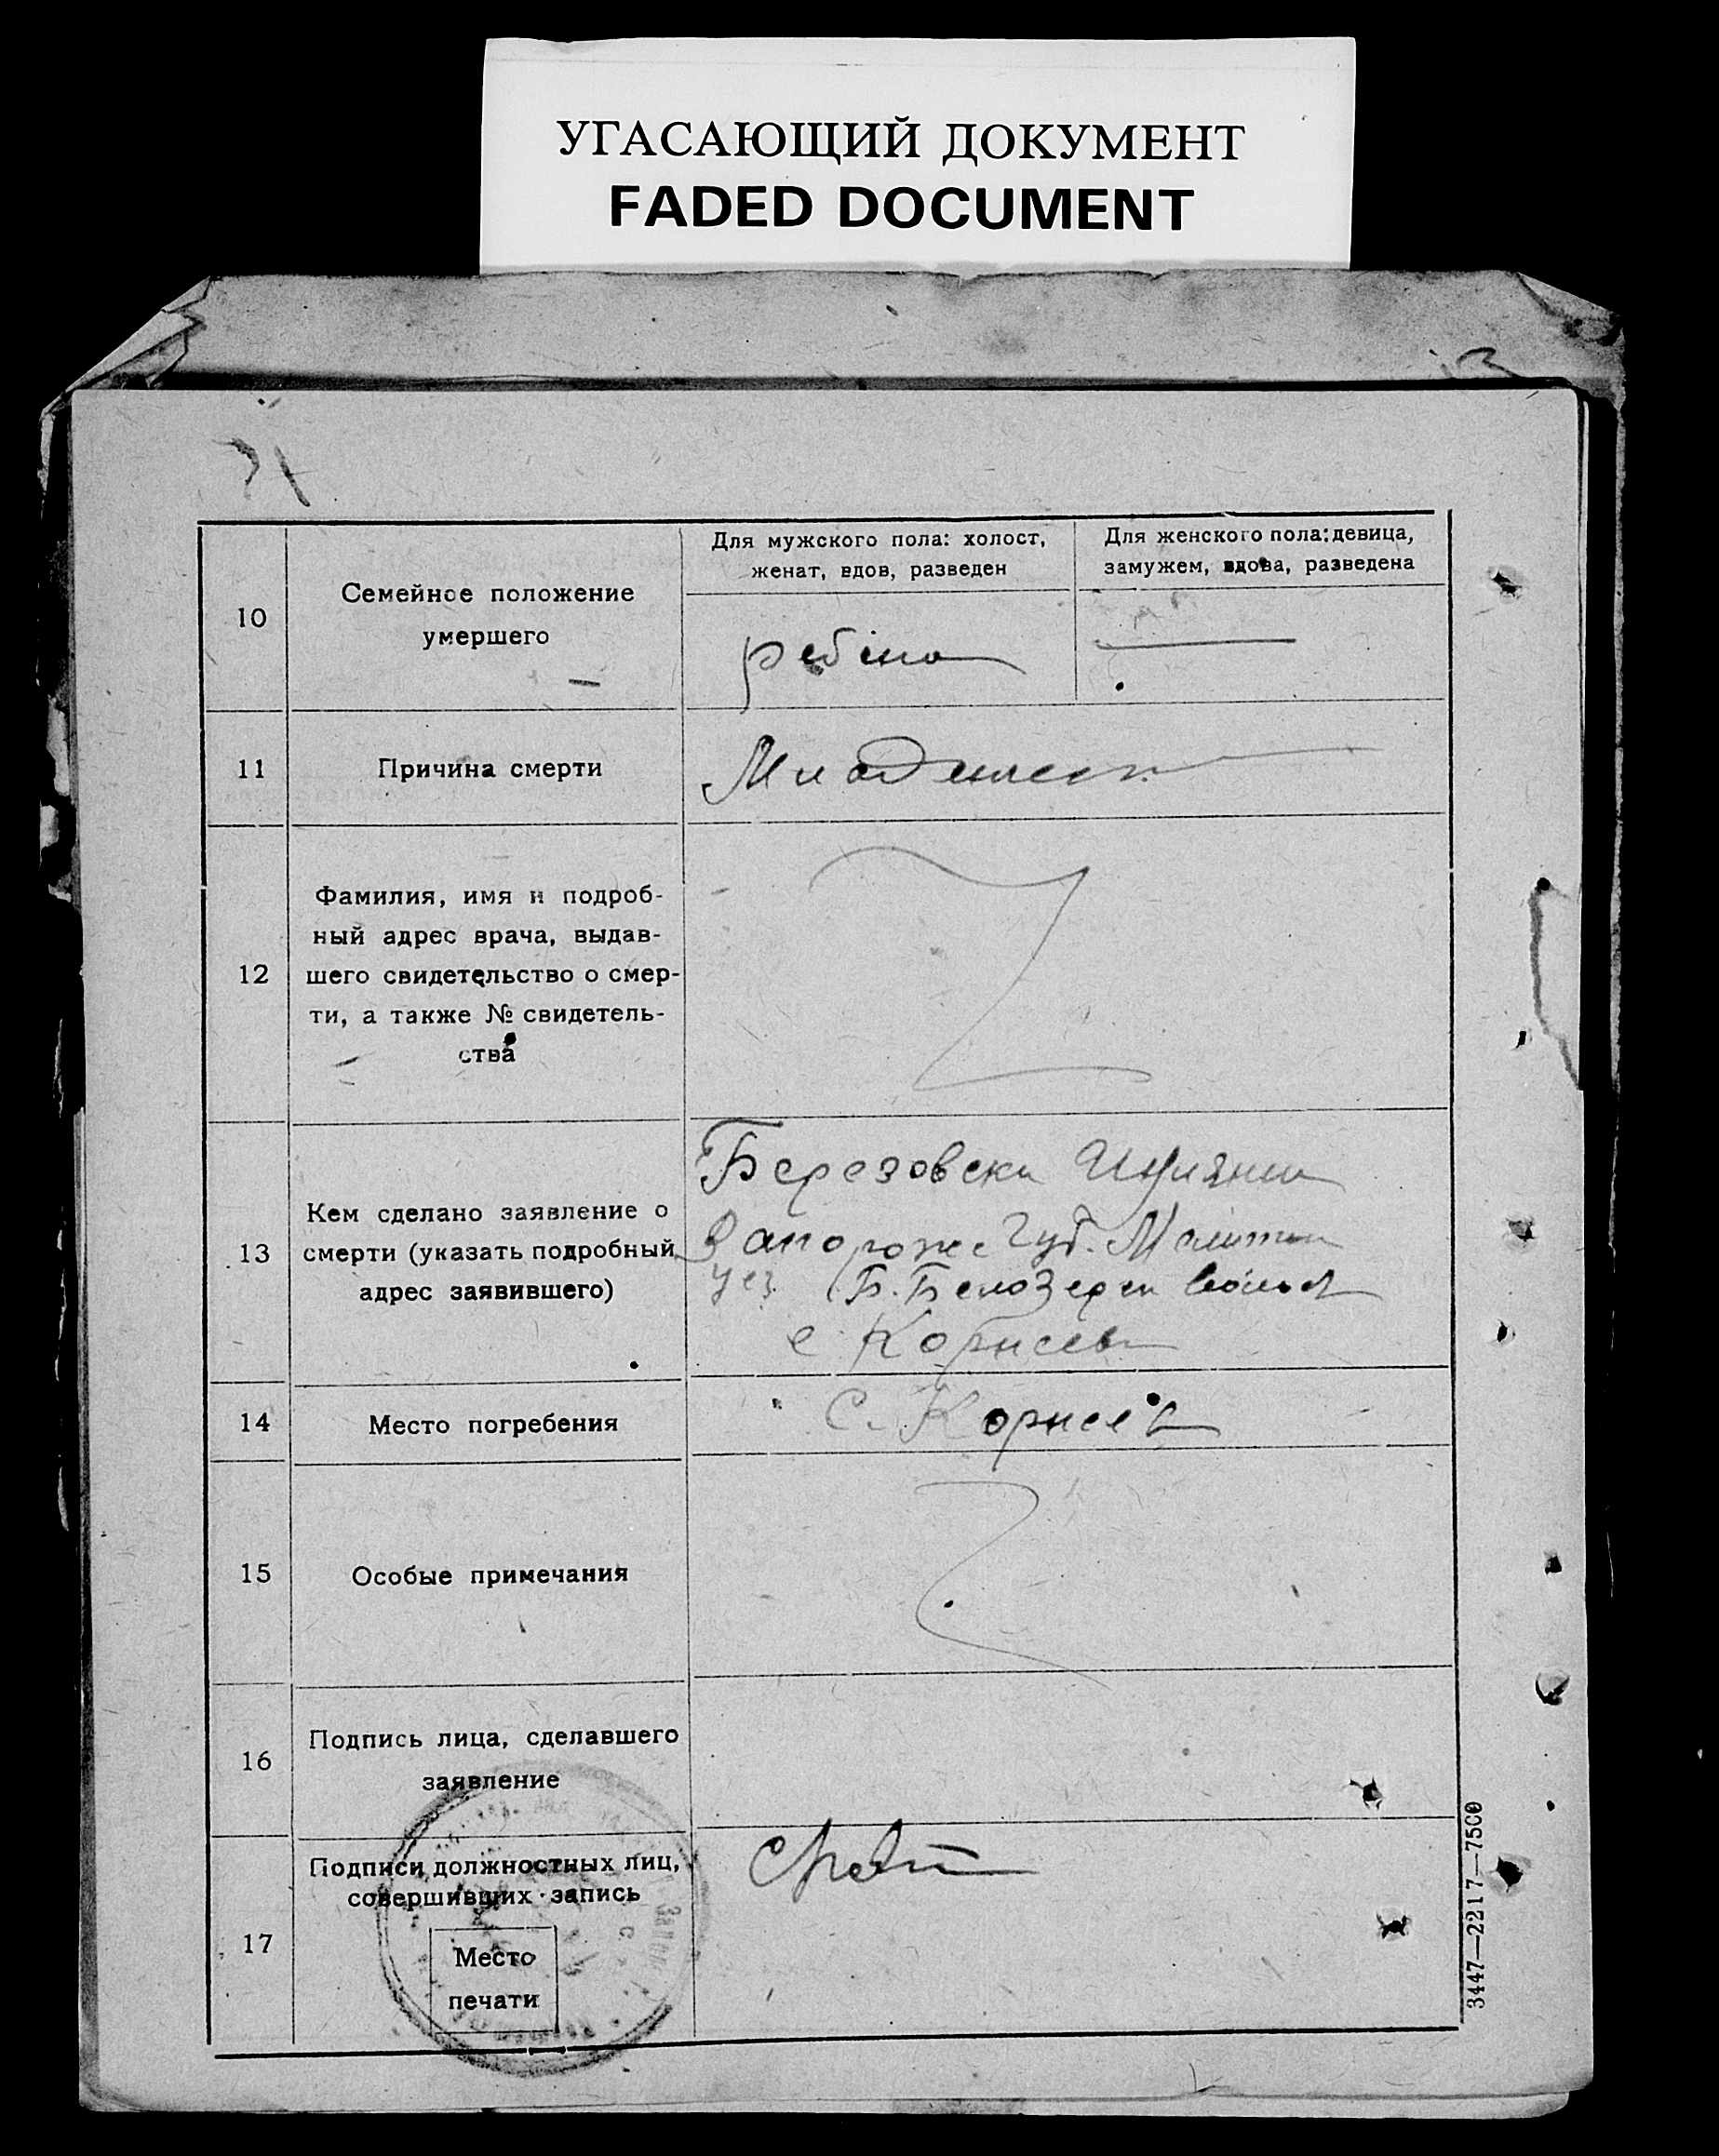 УГАСАЮЩИЙ ДОКУМЕНТ
FADED DOCUMENT
10
Семейное положение
умершего
Для мужского пола: холост,
женат, вдов, разведен
Для женского пола: девица,
замужем, вдова, разведена
11
Причина смерти
12
Фамилия, имя и подроб-
ный адрес врача, выдав-
шего свидетельство о смер-
ти, а также № свидетель-
ства
13
Кем сделано заявление о
смерти (указать подробный
адрес заявившего)
Березовски
Запорож Губ. Мелит
уез Б. Белозерск
с. Корнеев
14
Место погребения
С. Корнеев
15
Особые примечания
16
Подпись лица, сделавшего
заявление
17
Подписи должностных лиц,
совершивших запись
Место
печати
3447—2217—7500